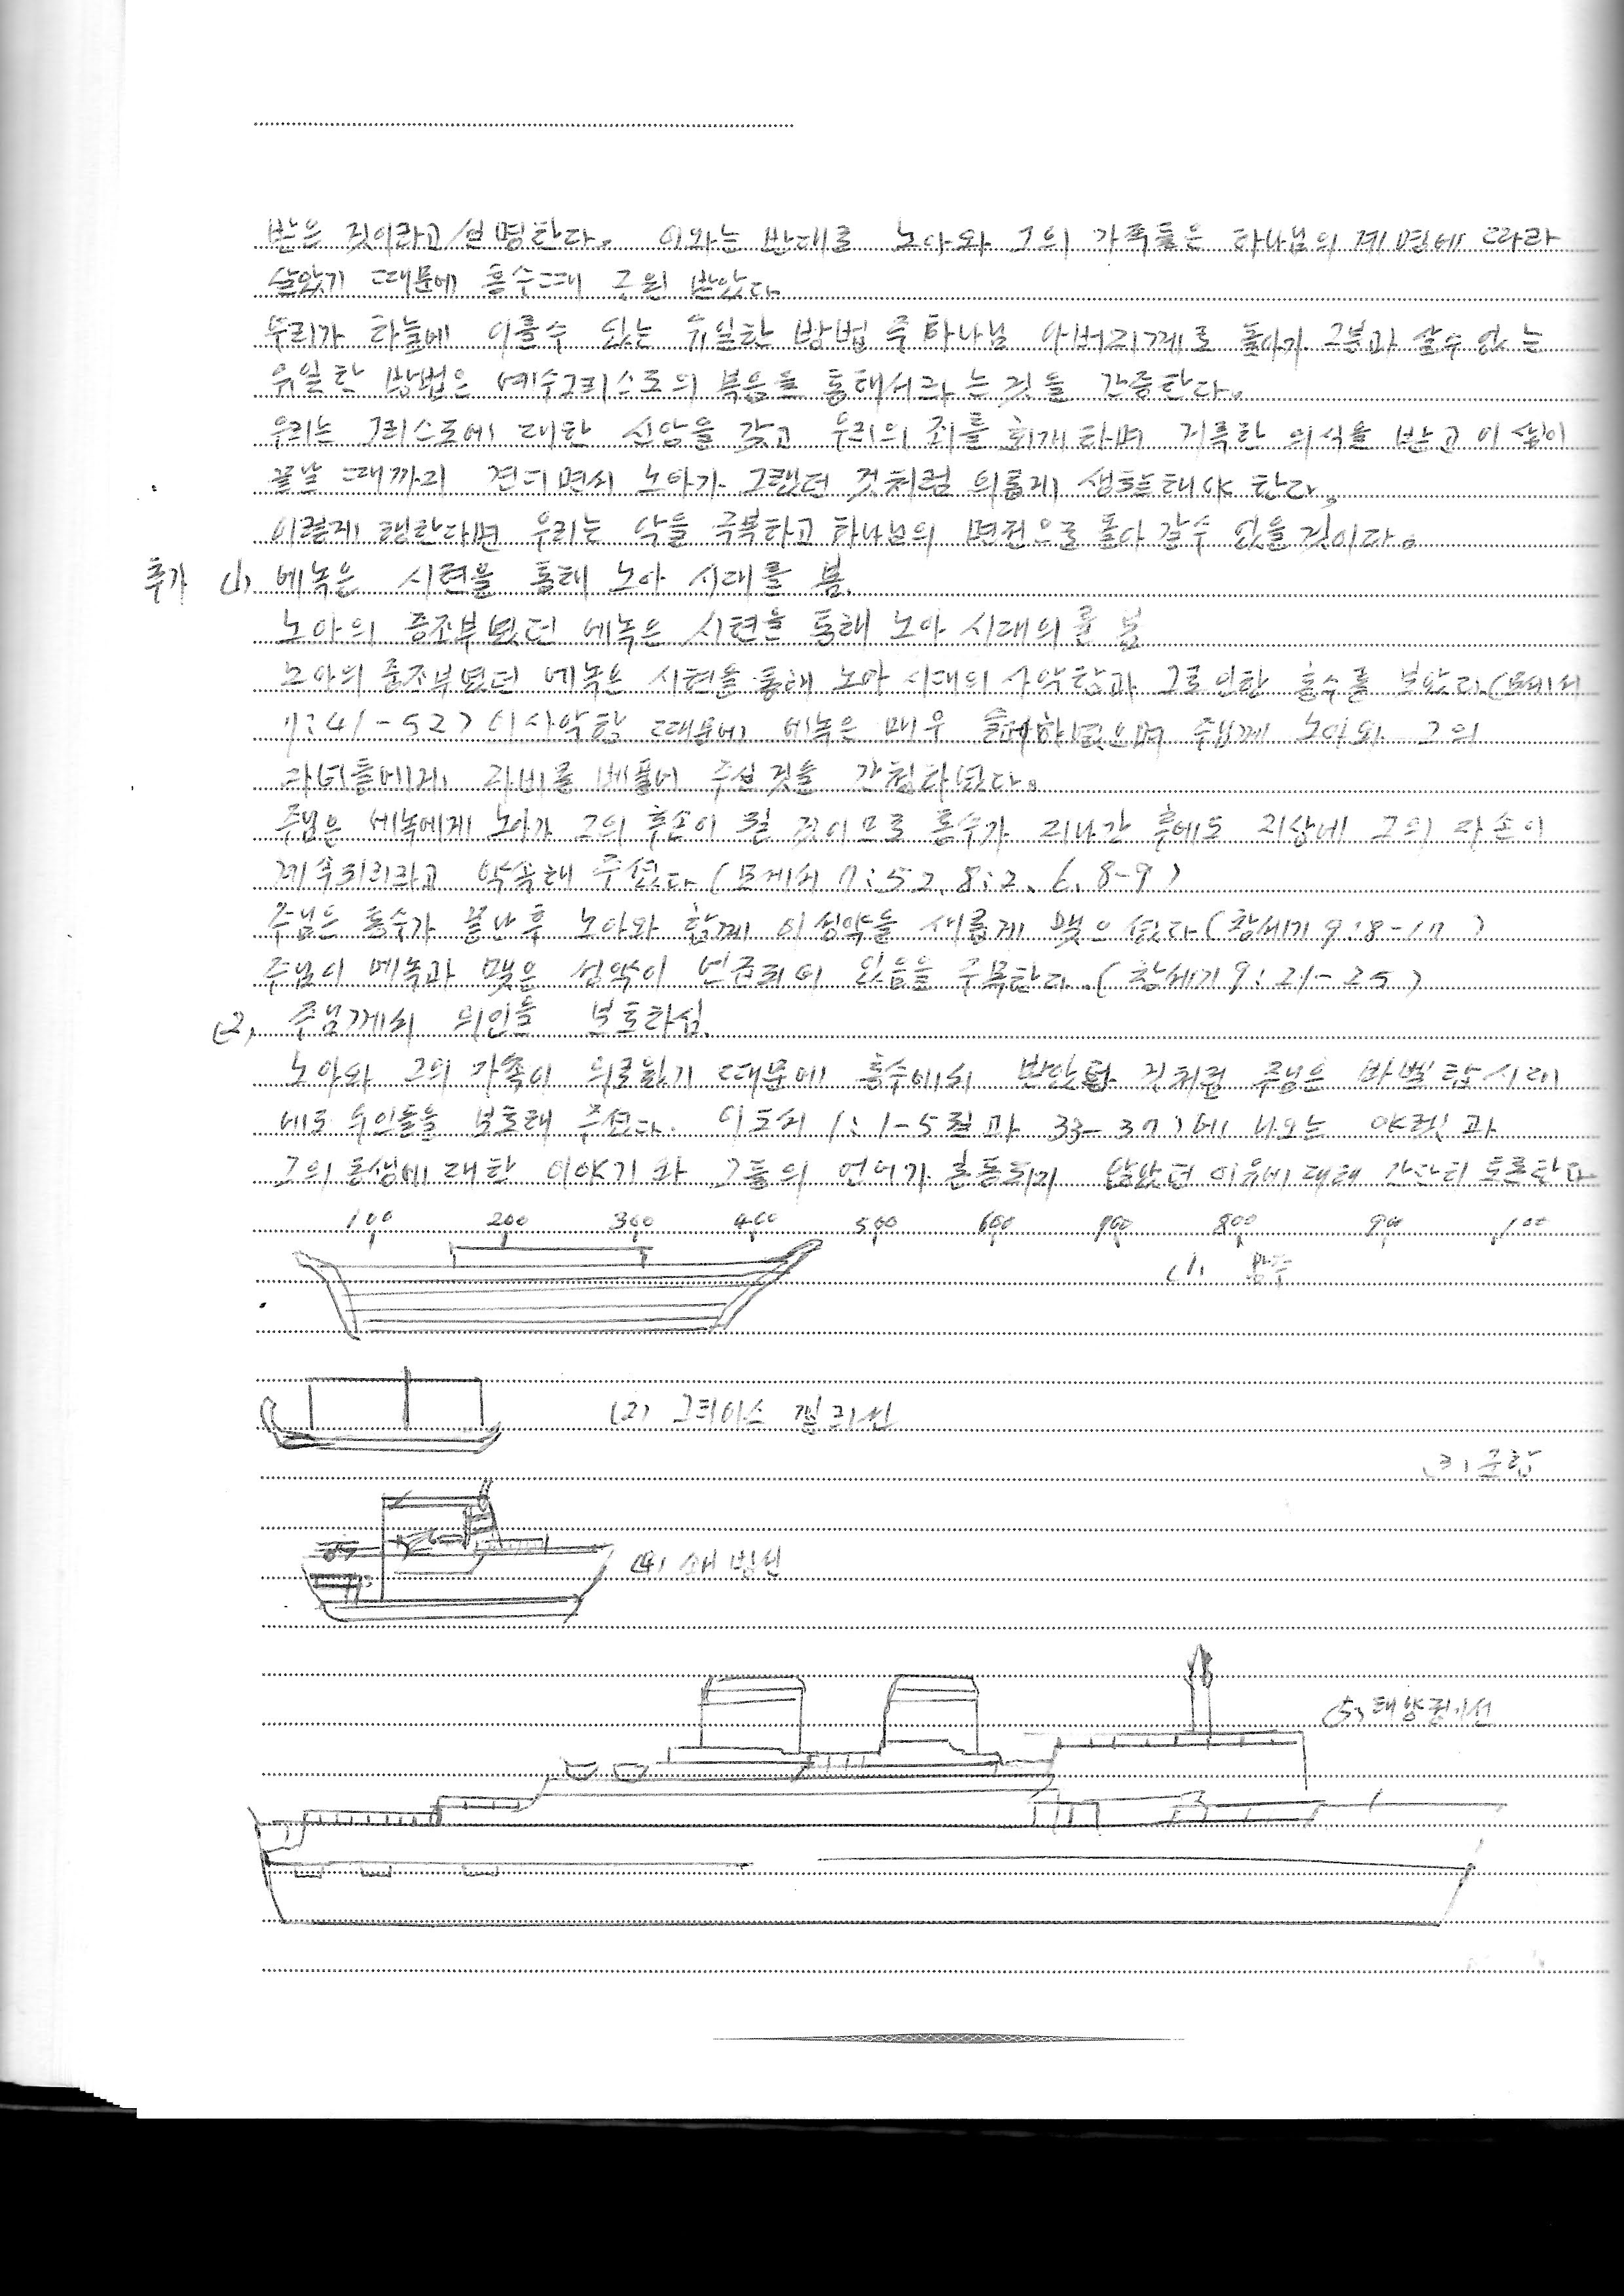 받은 것이라고 설명한다. 이와는 반대로 노아와 그의 가족들은 하나님의 계명에 따라
살았기 때문에 홍수때 구원 받았다
우리가 하늘에 이를수 있는 유일한 방법 즉 하나님 아버지께로 돌아가 그분과 살수 있는
유일한 방법은 예수그리스도의 복음을 통해서라는 것을 간증한다.
우리는 그리스도에 대한 신앙을 갖고 우리의 죄를 회개하며 거룩한 의식을 받고 이 삶이
끝날 때까지 견디면서 노아가 그랬던 것처럼 의롭게 생활해야 한다.
이렇게 행한다면 우리는 악을 극복하고 하나님의 면전으로 돌아 갈수 있을 것이다.
추가 (1) 에녹은 시현을 통해 노아 시대를 봄.
노아의 증조부였던 에녹은 시현을 통해 노아 시대의를 봄
노아의 증조부였던 에녹은 시현을 통해 노아 시대의 사악함과 그로인한 홍수를 보았다(모세서
7:41-52) 이 사악함 때문에 에녹은 매우 슬퍼하였으며 주님께 노아와 그의
자녀들에게 자비를 베풀어 주실것을 간청하였다.
주님은 에녹에게 노아가 그의 후손이 될 것이므로 홍수가 지나간 후에도 지상에 그의 자손이
계속되리라고 약속해 주셨다 (모세서 7:52, 8:2, 6, 8-9)
주님은 홍수가 끝난후 노아와 함께 이 성약을 새롭게 맺으셨다(창세기 9:8-17)
주님이 에녹과 맺은 성약이 언급되어 있음을 주목한다.(창세기 9:21-25)
(2) 주님께서 의인을 보호하심.
노아와 그의 가족이 의로웠기 때문에 홍수에서 것처럼 주님은 바벨탑 시대
에도 의인들을 보호해 주셨다. 이더서 1:1-5절과 33-37)에 나오는 야렛과
그의 동생에 대한 이야기와 그들의 언어가 혼동되지 않았던 이유에 대해 간단히 토론한다
100 200 300 400 500 600 700 800 900 100
(1)
(2) 그레이스 갤리선
(3) 군함
(4) 쇄빙선
(5) 태양광선